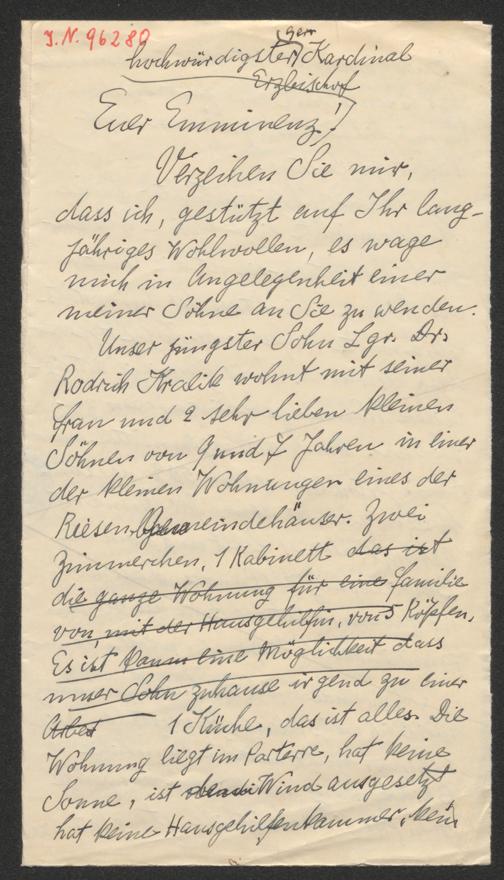 J.N. 96280
Herr
hochwürdigster Kardinal
Erzbischof
Euer Emminenz!
Verzeihen Sie mir,
dass ich, gestützt auf Ihr lang-
jähriges Wohlwollen, es wage
mich in Angelegenheit einer
meiner Söhne an Sie zu wenden.
Unser jüngster Sohn Lgr. Dr.
Rodrich Kralik wohnt mit seiner
Frau und 2 sehr lieben kleinen
Söhnen von 9 und 7 Jahren in einer
der kleinen Wohnungen eines der
Riesen Gemeindehäuser. Zwei
Zimmerchen, 1 Kabinett das ist
die ganze Wohnung für eine Familie
von, mit der Hausgehilfin, von 5 Köpfen.
Es ist kaum eine Möglichkeit dass
unser Sohn zuhause irgend zu einer
Arbeit 1 Küche, das ist alles. Die
Wohnung liegt im Parterre, hat keine
Sonne, ist Wind ausgesetzt
hat keine Hausgehilfenkammer, kein